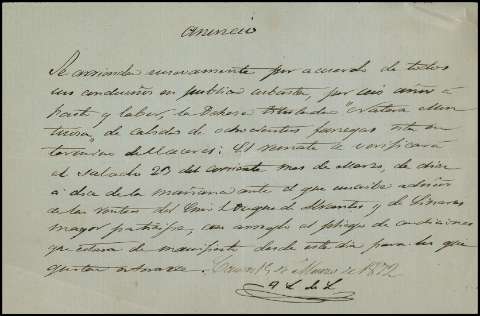 Anuncio
Se arrienda nuevamente por acuerdo de todos
sus condueños en publica subasta, por seis años á
pasto y labor, la Dehesa titulada "Natera
de cabida de ochocientas fanegas sita en
termino de Caceres: El remate se verificará
el sabado 23 del corriente mes de Marzo, de diez
á doce de la mañana ante el que suscribe
de las rentas del Exmo Sr Duque de Abrantes y de Linares
mayor participe, con arreglo al pliego de condiciones
que estara de manifiesto desde este dia para los que
gusten enterarse. Caceres 15 de Marzo de 1872
A L de L